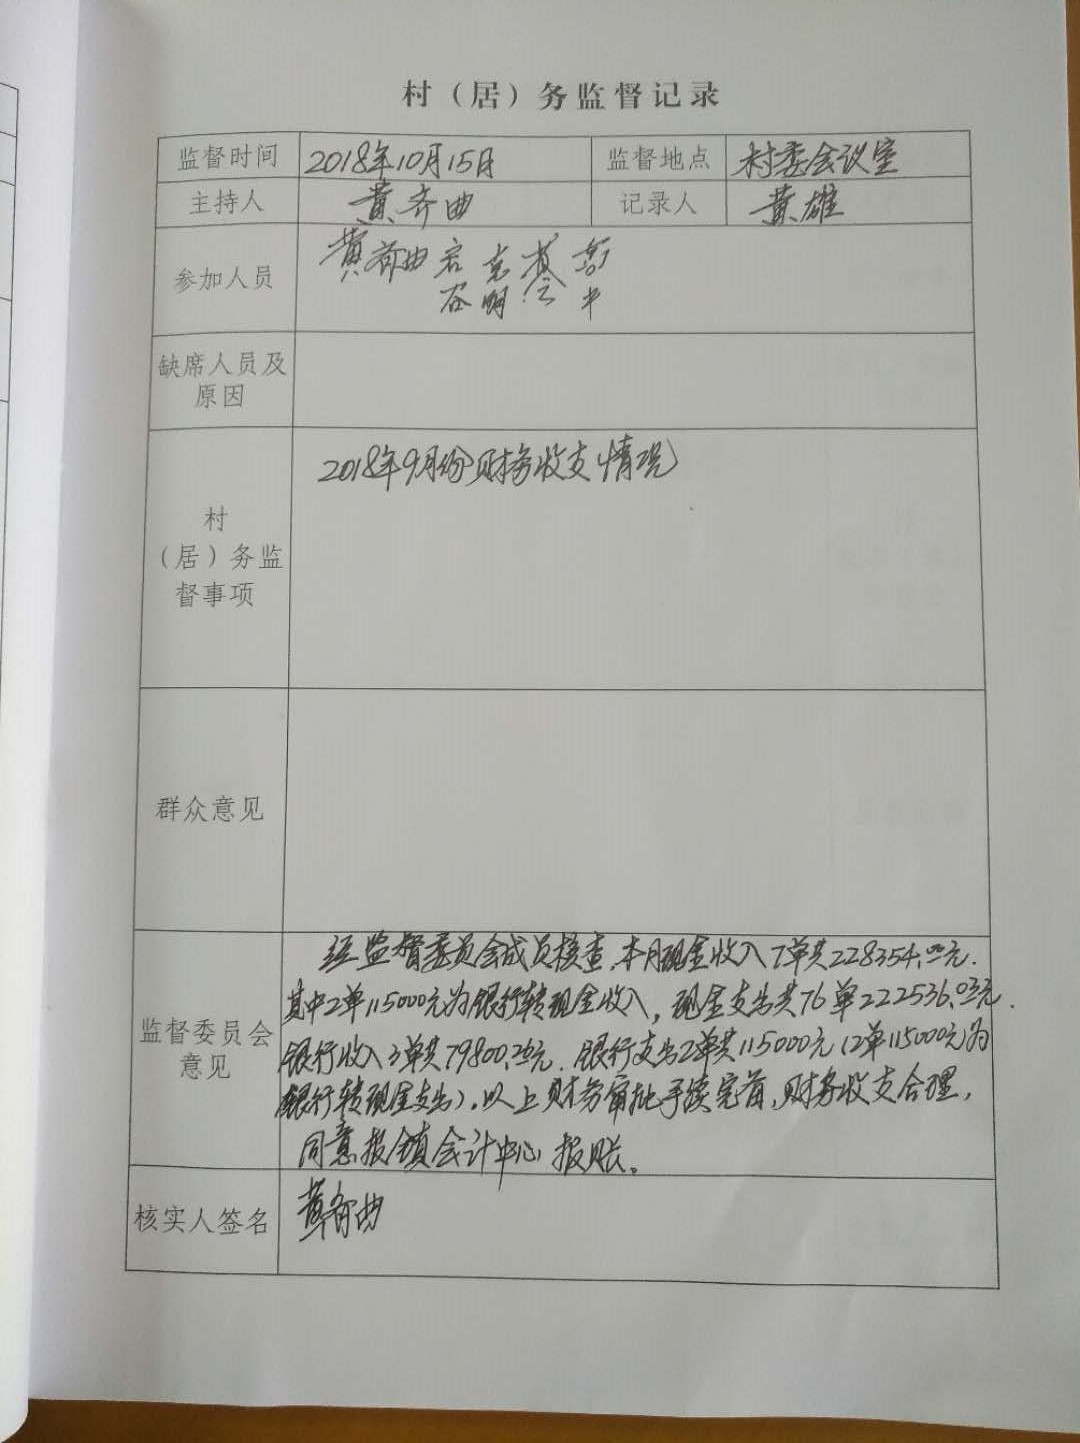 村（居）务监督记录
监督时间 2018年10月15日 监督地点 村委会议室
主持人 黄齐曲 记录人 黄雄
参加人员 黄齐曲
缺席人员及
原因
2018年9月份财务收支情况
村
（居）务监
督事项
群众意见
经监督委员会成员核查，本月现金收入7单共228354.00元.
其中2单115000元为银行转现金收入，现金支出共76单222536.03元.
监督委员会
意见
银行收入3单共79800.20元.银行支出2单共115000元(2单115000元为
银行转现金支出).以上财务审批手续完备,财务收支合理,
同意报镇会计中心报账。
核实人签名 黄齐曲